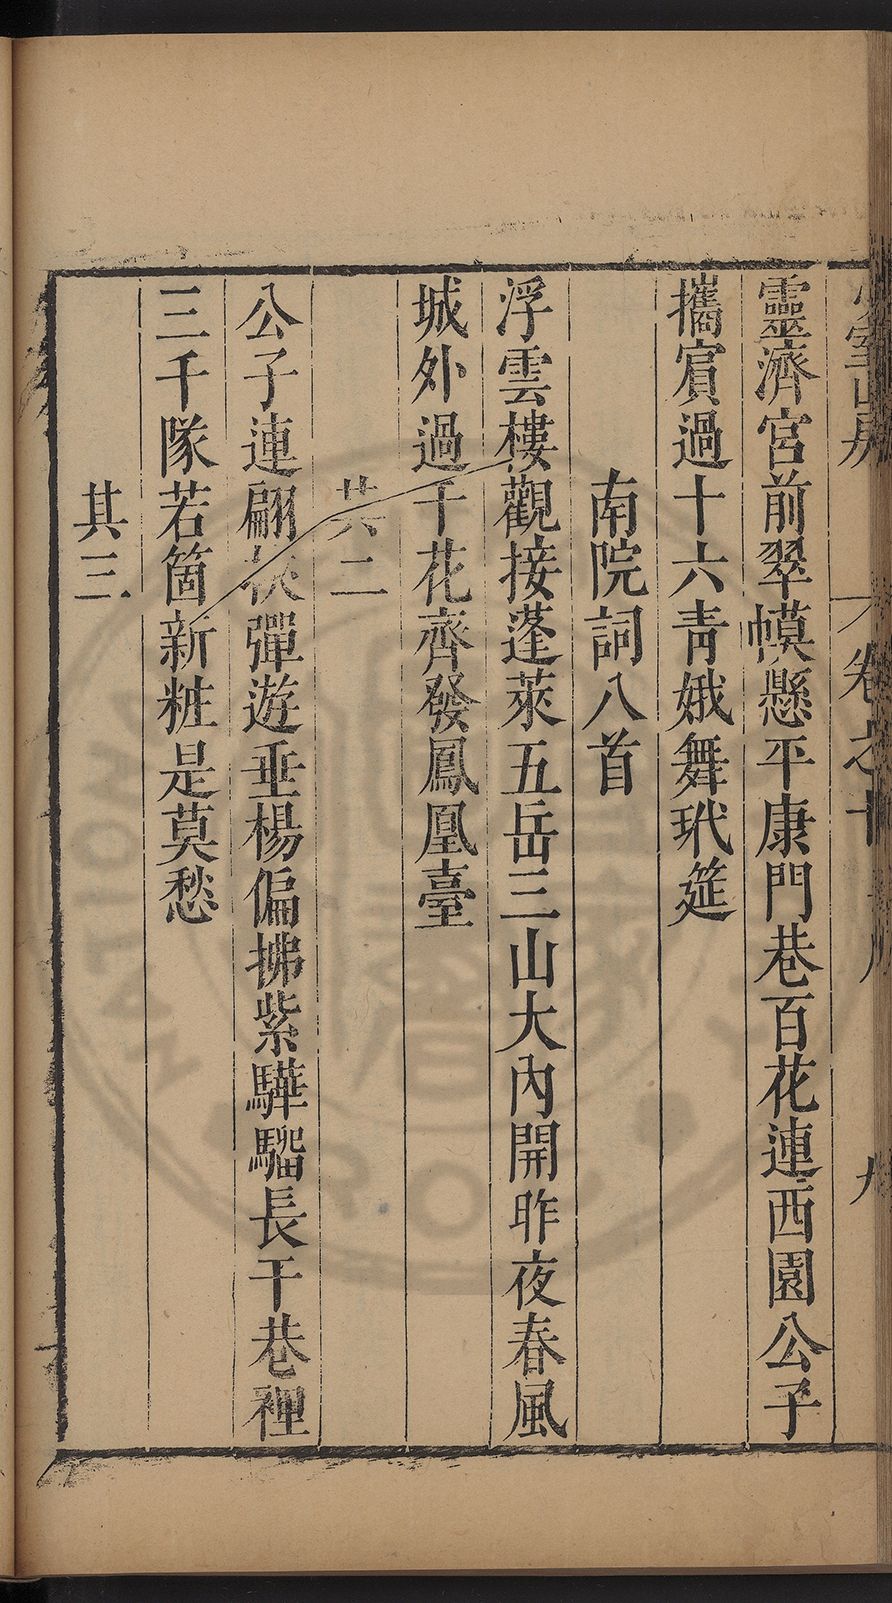 少室山房 卷之十八 九
靈濟宮前翠幙懸平康門巷百花連西園公子
攜賓過十六青娥舞玳筵
南院詞八首
浮雲樓觀接蓬萊五岳三山大內開昨夜春風
城外過千花齊發鳳凰臺
其二
公子連翩挾彈遊垂楊偏拂紫驊騮長干巷裡
三千隊若箇新粧是莫愁
其三